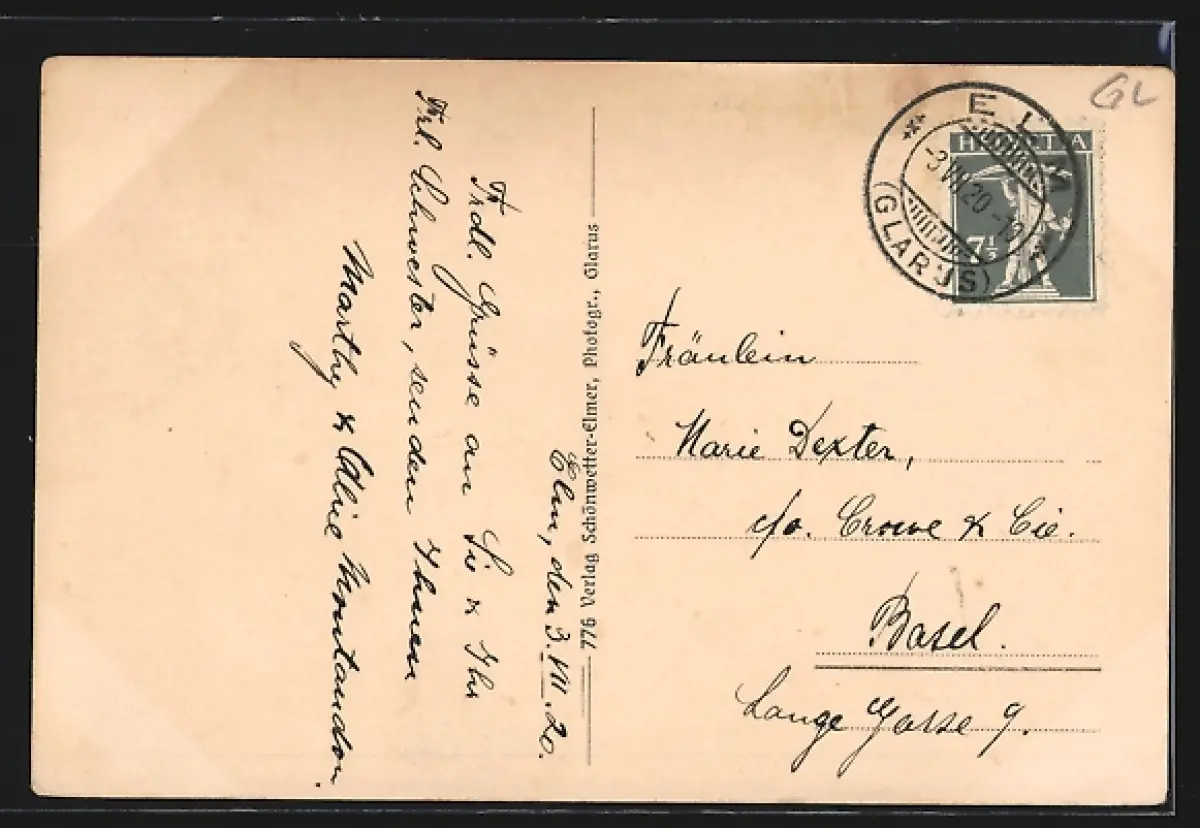 Elm, den 3. VIII. 20.
Frdl. Grüsse an Sie & Ihr
Frl. Schwester, senden Ihnen
Marthy & Aline Montandon.
776 Verlag Schönwetter-Elmer, Photogr., Glarus
GL
* ELM *
-3.VIII.20.-
(GLARUS)
HELVETIA
7½
Fräulein
Marie Dexter,
c/o. Crowe & Cie.
Basel.
Lange Gasse 9.